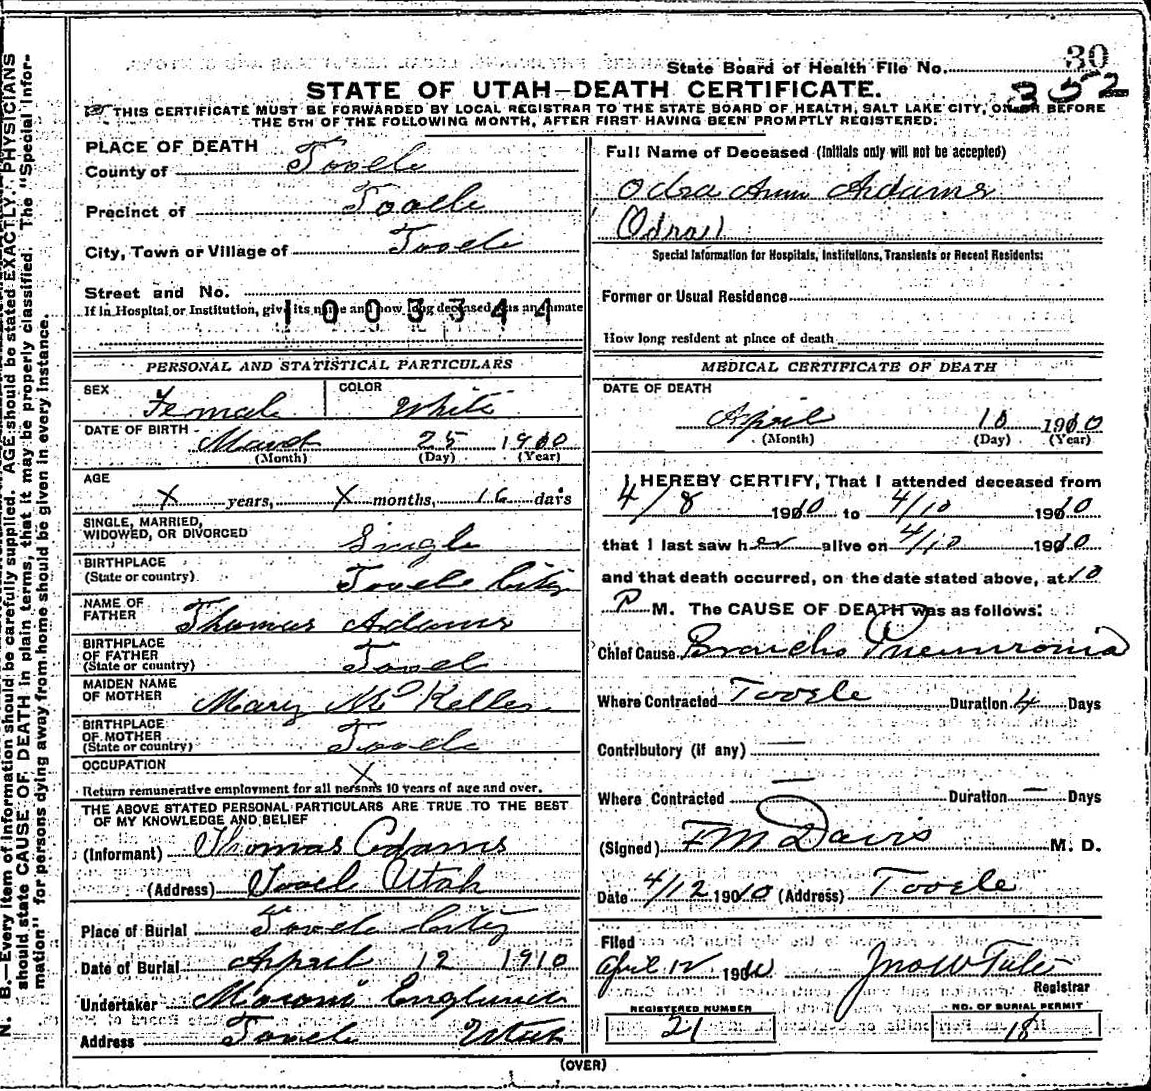 N. B.—Every item of information should be carefully supplied. AGE should be stated EXACTLY. PHYSICIANS
should state CAUSE OF DEATH in plain terms, that it may be properly classified. The "Special Infor-
mation" for persons dying away from home should be given in every instance.
30
State Board of Health File No.
352
STATE OF UTAH—DEATH CERTIFICATE.
THIS CERTIFICATE MUST BE FORWARDED BY LOCAL REGISTRAR TO THE STATE BOARD OF HEALTH, SALT LAKE CITY, ON OR BEFORE
THE 5TH OF THE FOLLOWING MONTH, AFTER FIRST HAVING BEEN PROMPTLY REGISTERED.
PLACE OF DEATH
County of Tooele
Precinct of Tooele
City, Town or Village of Tooele
Street and No.
If in Hospital or Institution, give its name and how long deceased was an inmate
1003344
Full Name of Deceased (Initials only will not be accepted)
Odra Ann Adams
Special Information for Hospitals, Institutions, Transients or Recent Residents:
Former or Usual Residence
How long resident at place of death
PERSONAL AND STATISTICAL PARTICULARS
SEX Female COLOR White
DATE OF BIRTH March 25 1910
(Month) (Day) (Year)
AGE
X years, X months, 16 days
SINGLE, MARRIED,
WIDOWED, OR DIVORCED Single
BIRTHPLACE
(State or country) Tooele City
NAME OF
FATHER Thomas Adams
BIRTHPLACE
OF FATHER
(State or country) Tooele
MAIDEN NAME
OF MOTHER Mary McKellar
BIRTHPLACE
OF MOTHER
(State or country) Tooele
OCCUPATION X
Return remunerative employment for all persons 10 years of age and over.
THE ABOVE STATED PERSONAL PARTICULARS ARE TRUE TO THE BEST
OF MY KNOWLEDGE AND BELIEF
(Informant) Thomas Adams
(Address) Tooele Utah
Place of Burial Tooele City
Date of Burial April 12 1910
Undertaker Moroni England
Address Tooele Utah
MEDICAL CERTIFICATE OF DEATH
DATE OF DEATH
April 10 1910
(Month) (Day) (Year)
I HEREBY CERTIFY, That I attended deceased from
4/8 1910 to 4/10 1910
that I last saw her alive on 4/10 1910
and that death occurred, on the date stated above, at 10
P M. The CAUSE OF DEATH was as follows:
Chief Cause Broncho Pneumonia
Where Contracted Tooele Duration 4 Days
Contributory (if any) —
Where Contracted — Duration — Days
(Signed) F M Davis M. D.
Date 4/12 1910 (Address) Tooele
Filed
April 12 1910 Jno W Tate
Registrar
REGISTERED NUMBER
21
NO. OF BURIAL PERMIT
18
(OVER)